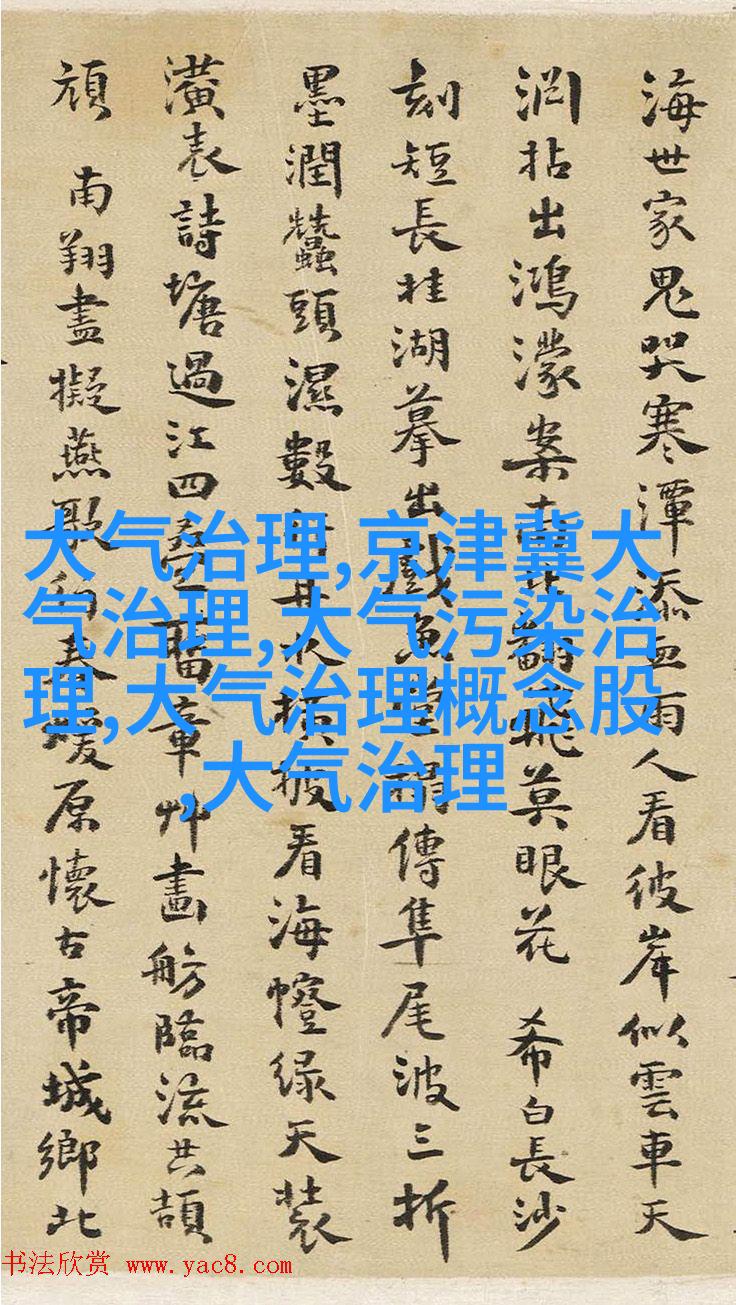 海世家鬼哭寒潭添血雨人看彼岸似雲車天
渊拈出鴻濛案南翻飛莫眼花 希白長沙
刻短長桂湖摹出戲魚堂傳隼尾波三折
墨潤蠶頭濕數橫披看海幢緑天裝
潢表詩塘過江四章艸畫舫臨流共頡
頏 南翔盡擬燕歌春暖原懷古帝城鄉北
大气治理,京津冀大
气治理,大气污染治
理,大气治理概念股
,大气治理
书法欣赏 www.yac8.com